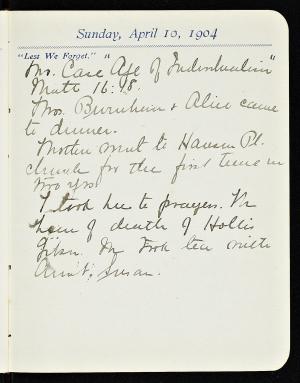 Sunday, April 10, 1904
"Lest We Forget." "
Mr. Case Age of Individualism"
Matt 16:18.
Mrs. Burnheim & Alice came
to dinner.
Mother went to Hanson Pl.
church for the first time in
two yrs.
I took her to prayers. We
hear of death of Hollis
We took tea with
Aunt Susan.